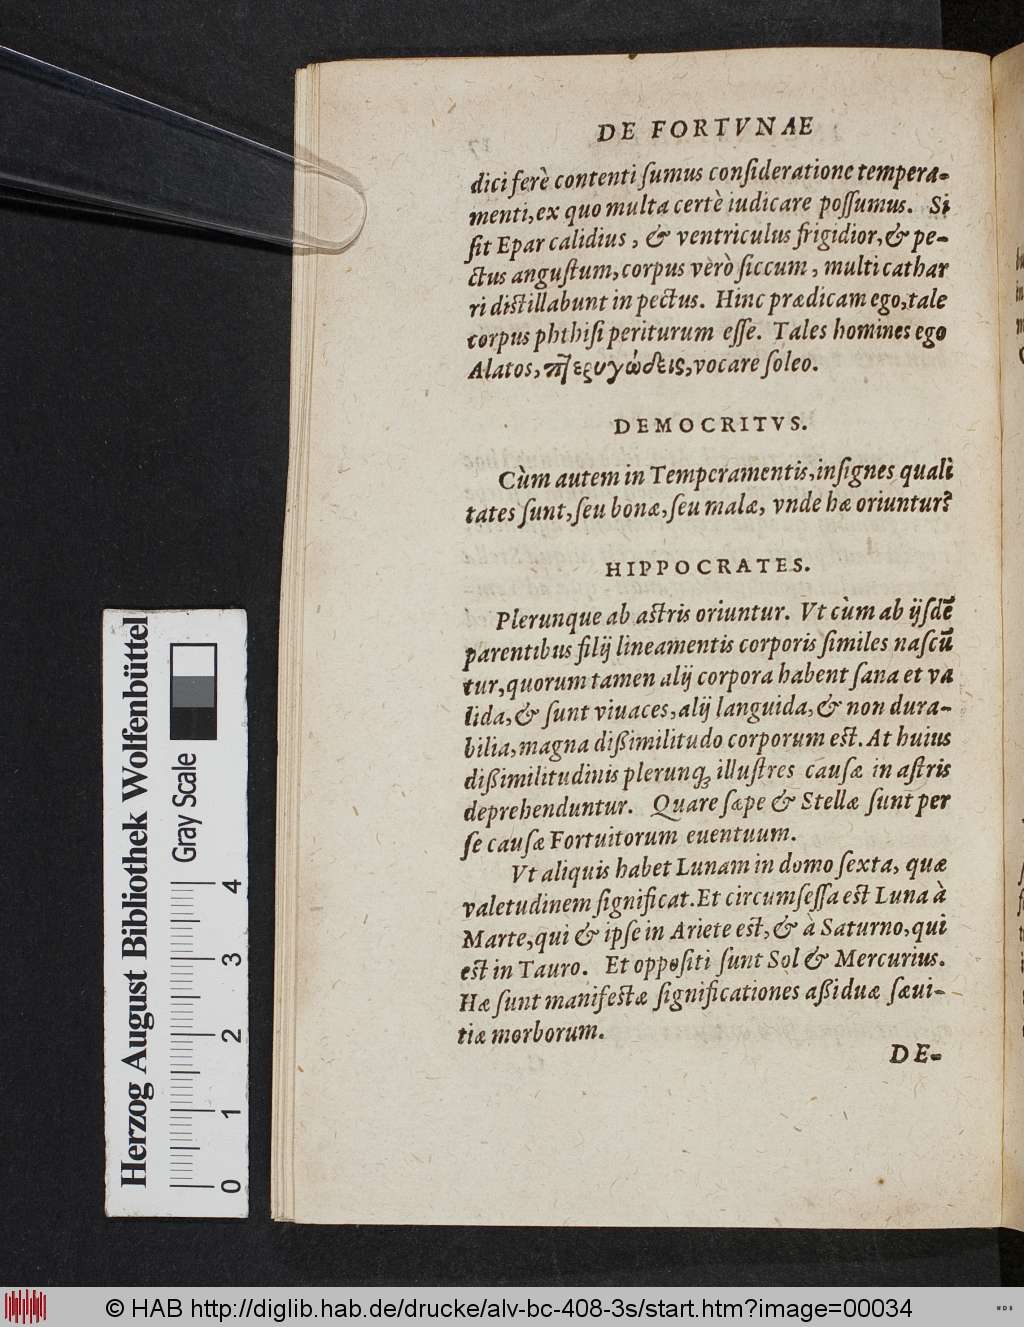 DE FORTVNAE
dici ferè contenti ſumus conſideratione tempera-
menti, ex quo multa certè iudicare poſſumus. Si
ſit Epar calidius, & ventriculus frigidior, & pe-
ctus anguſtum, corpus verò ſiccum, multi cathar
ri diſtillabunt in pectus. Hinc prædicam ego, tale
corpus phthiſi periturum eſſe. Tales homines ego
Alatos, πτερυγώδεις, vocare ſoleo.
DEMOCRITVS.
Cùm autem in Temperamentis, inſignes quali
tates ſunt, ſeu bonæ, ſeu malæ, vnde hæ oriuntur?
HIPPOCRATES.
Plerunque ab aſtris oriuntur. Vt cùm ab ijſdē
parentibus filij lineamentis corporis ſimiles naſcū
tur, quorum tamen alij corpora habent ſana et va
lida, & ſunt viuaces, alij languida, & non dura-
bilia, magna diſsimilitudo corporum eſt. At huius
diſsimilitudinis plerunq; illuſtres cauſæ in aſtris
deprehenduntur. Quare ſæpe & Stellæ ſunt per
ſe cauſæ Fortuitorum euentuum.
Vt aliquis habet Lunam in domo ſexta, quæ
valetudinem ſignificat. Et circumſeſſa eſt Luna à
Marte, qui & ipſe in Ariete eſt, & à Saturno, qui
eſt in Tauro. Et oppoſiti ſunt Sol & Mercurius.
Hæ ſunt manifeſtæ ſignificationes aſsiduæ ſæui-
tiæ morborum.
DE-
Herzog August Bibliothek Wolfenbüttel
Gray Scale
0 1 2 3 4
© HAB http://diglib.hab.de/drucke/alv-bc-408-3s/start.htm?image=00034